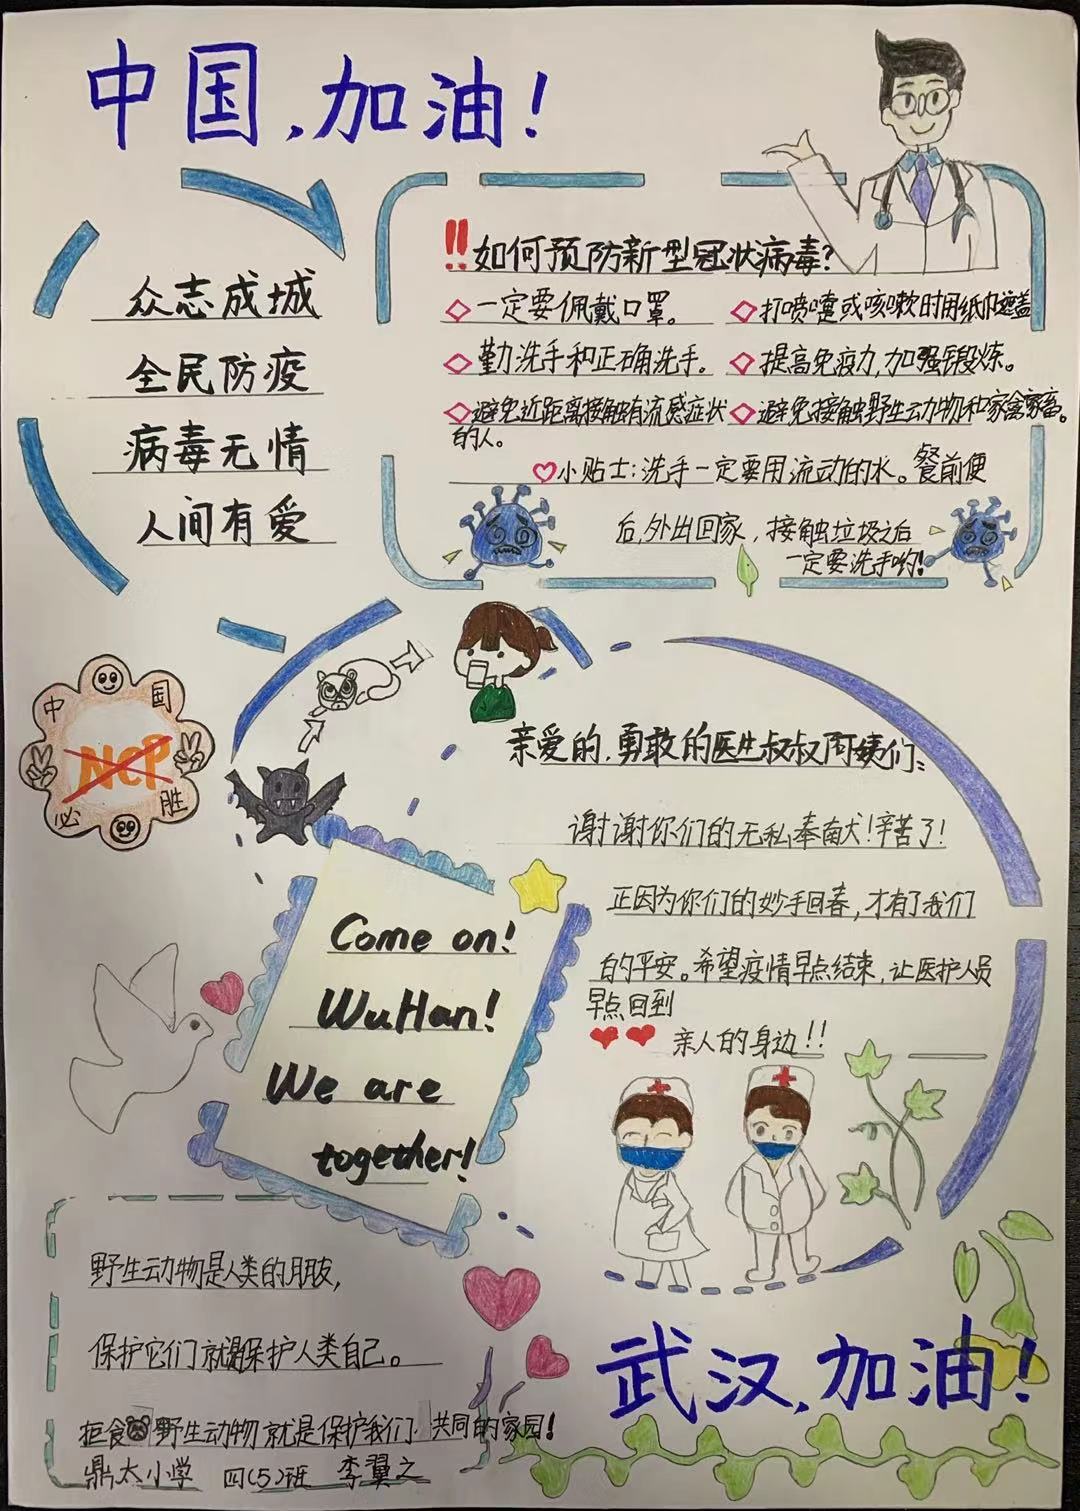 中国,加油!
众志成城
全民防疫
病毒无情
人间有爱
!!如何预防新型冠状病毒?
一定要佩戴口罩。
打喷嚏或咳嗽时用纸巾遮盖
勤洗手和正确洗手。
提高免疫力,加强锻炼。
避免近距离接触有流感症状
的人。
避免接触野生动物和家禽家畜。
小贴士:洗手一定要用流动的水。餐前便
后,外出回家,接触垃圾之后
一定要洗手哟!
中国
NCP
必胜
亲爱的,勇敢的医生叔叔阿姨们:
谢谢你们的无私奉献!辛苦了!
正因为你们的妙手回春,才有了我们
的平安。希望疫情早点结束,让医护人员
早点回到
亲人的身边!!
Come on!
WuHan!
We are
together!
野生动物是人类的朋友,
保护它们就是保护人类自己。
拒食野生动物就是保护我们共同的家园!
鼎太小学 四(5)班 李翼之
武汉,加油!